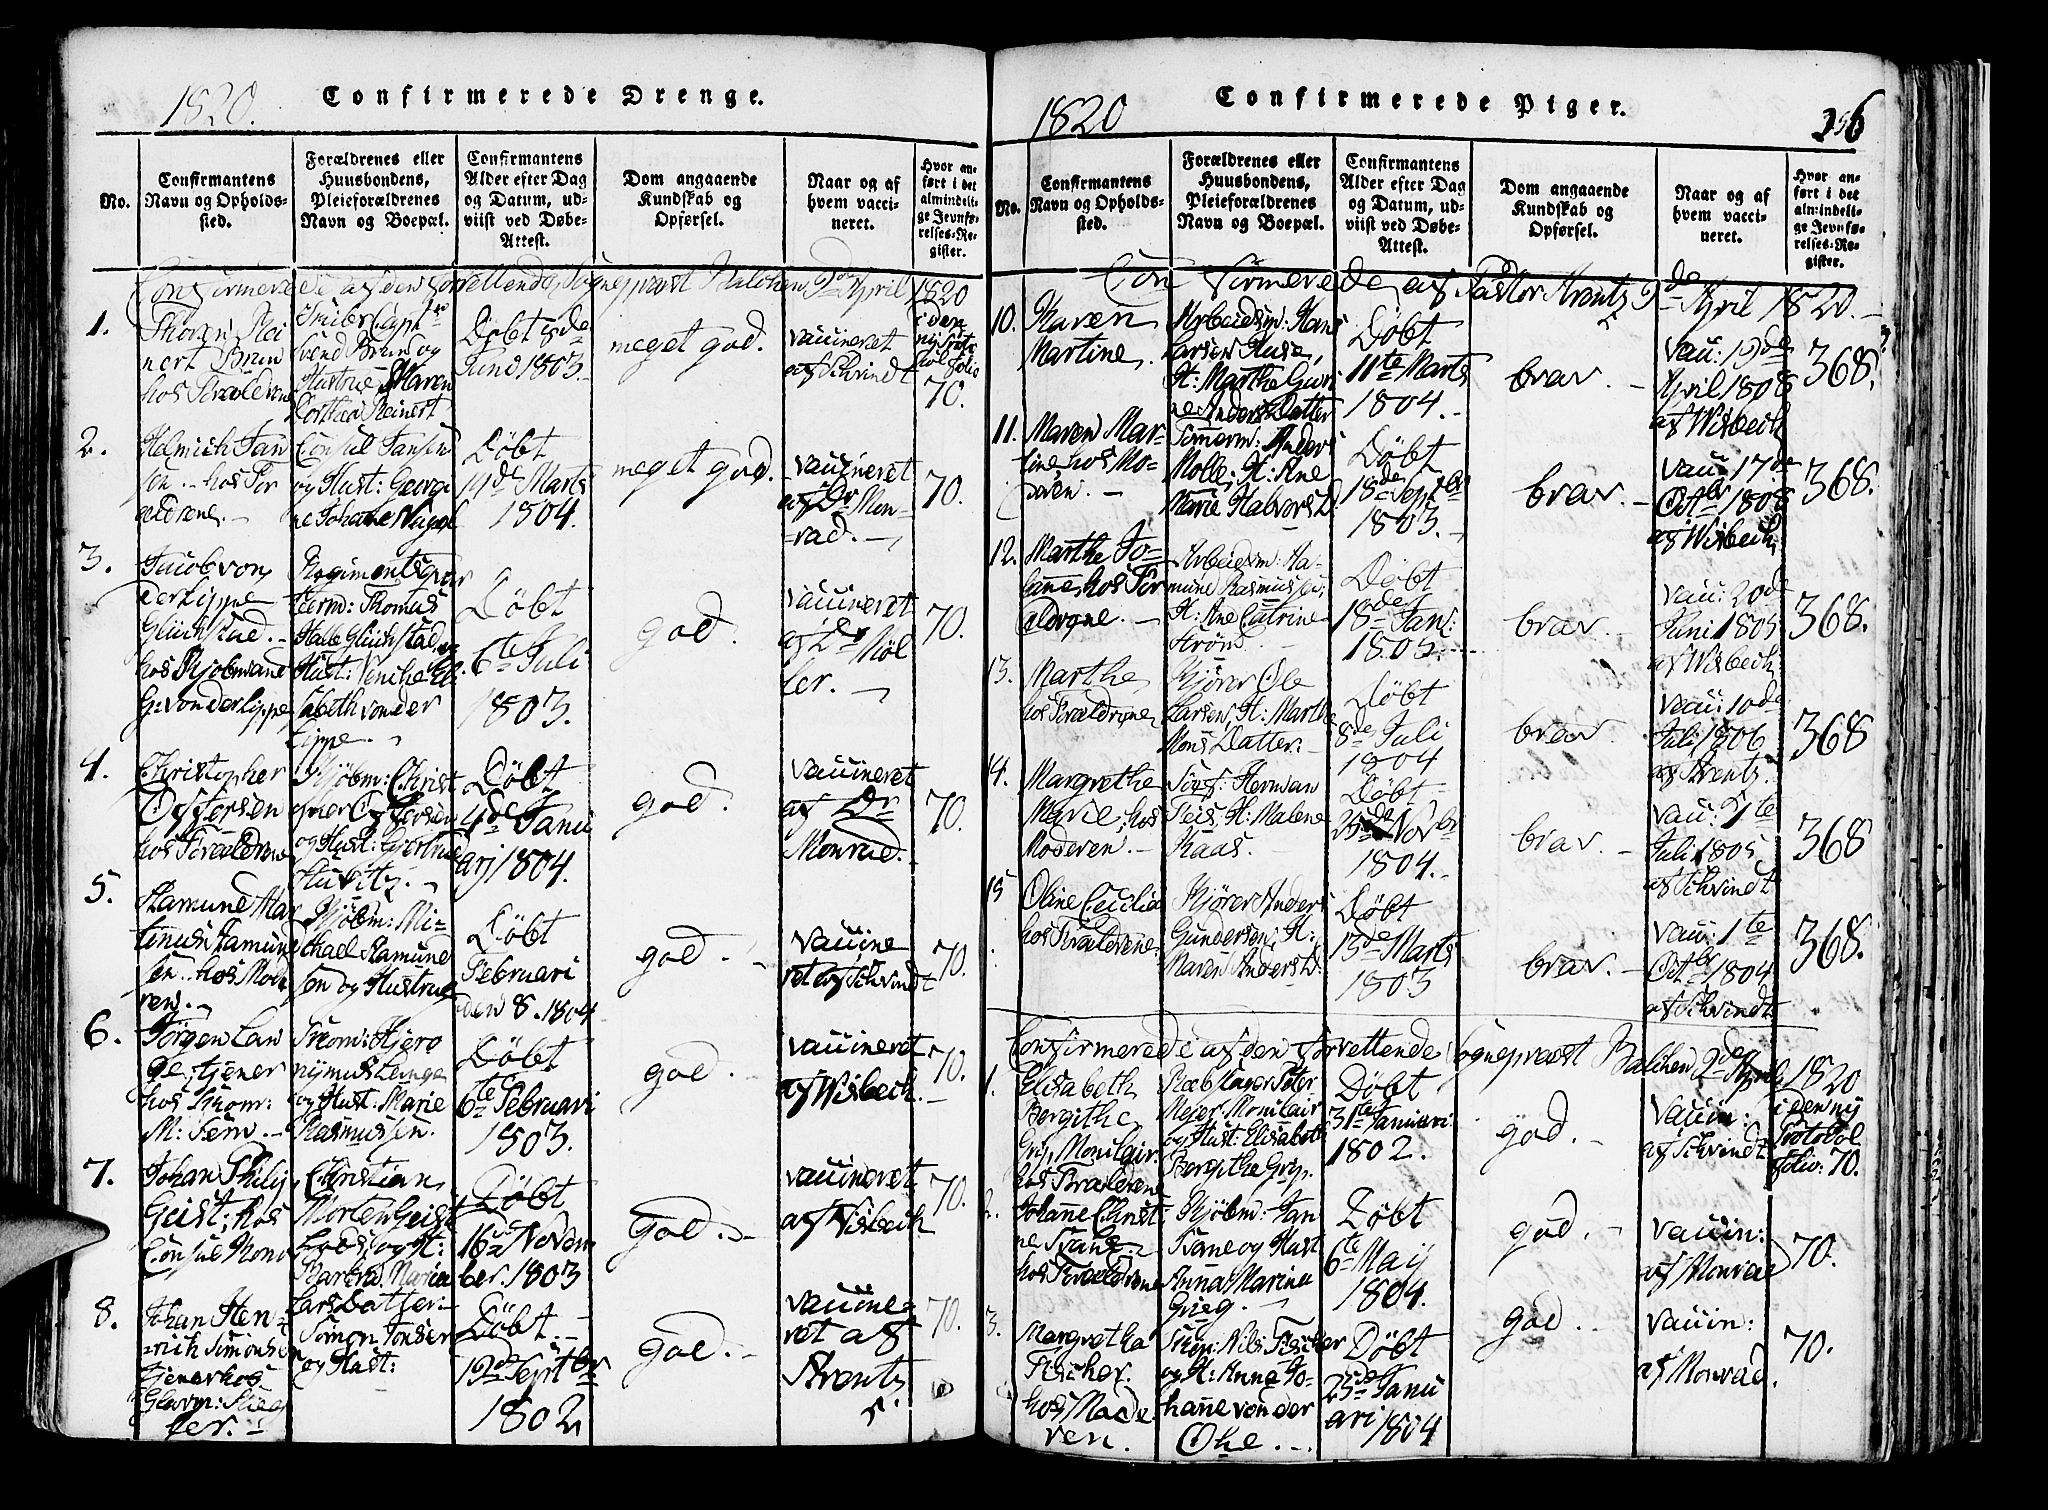 1820.
Confirmerede Drenge.
No.
Confirmantens
Navn og Opholds-
sted.
Forældrenes eller
Huusbondens,
Pleieforældrenes
Navn og Boepæl.
Confirmantens
Alder efter Dag
og Datum, ud-
viist ved Døbe-
Attest.
Dom angaaende
Kundskab og
Opførsel.
Naar og af
hvem vacci-
neret.
Hvor an-
ført i det
almindeli-
ge Jevnfø-
relses-Re-
gister.
Confirmerede af den forrettende Sognepræst Balchen 2de April 1820
1.
hos Forældrene
Svend Brun og
Hustrue Maren
Dorthea Reinert
Døbt 8de
Juni 1803.
meget god.
vaccineret
af Schvindt
i den
ny Proto-
kol folio
70.
2.
Helmich Jan
sen. hos For
ældrene.
Consul Jansen
og Hust: Georgi
ne Johane
Døbt
19de Marts
1804.
meget god.
vaccineret
af Dr Mon-
rad.
70.
3.
Jacob von
der Lippe
Glückstad.
hos Kjøbmand
G: von der Lippe
Thomas
Halle Glückstad,
Hust: Venche Eli
sabeth von der
Lippe.
Døbt
6te Juli
1803.
god.
vaccineret
af Dr Møl
ler.
70.
4.
Christopher
Offersen
hos Forældrene
Kjøbm: Christ
opher Offersen
og Hust: Gjertrud
Døbt
4de Janu
arj 1804.
god.
vaccineret
af Dr
Monrad.
70.
5.
Aamund Mar
tinus Aamund
sen. hos Mod
ren.
Kjøbm: Mi-
chael Aamund
sen og Hustrue
Døbt
Februari
den 8. 1804
god.
vaccine
ret af Schvindt
70.
6.
Jørgen Lan
ge, tjener
hos Skom:
M: Fern.
Skom: Hjero
nijmus Lange
og Hust: Marie
Rasmussen.
Døbt
6te Februari
1803.
god.
vaccineret
af Wisbech.
70.
7.
Johan Philip
Geist; hos
Christian
Morten Geist
Lods, og H:
Maria
Lars Datter.
Døbt
16de Novem
ber. 1803
god.
vaccineret
af Visbech
70.
8.
Johan Hen-
rich Simonsen
tjener hos
Simon Jonsen
og Hust:
Døbt.
12de Septbr
1802
god.
vaccine-
ret af
Arentz
70.
1820
Confirmerede Piger.
356
No.
Confirmantens
Navn og Opholds-
sted.
Forældrenes eller
Huusbondens,
Pleieforældrenes
Navn og Boepæl.
Confirmantens
Alder efter Dag
og Datum, ud-
viist ved Døbe-
Attest.
Dom angaaende
Kundskab og
Opførsel.
Naar og af
hvem vacci-
neret.
Hvor an-
ført i det
almindeli-
ge Jevnfø-
relses-Re-
gister.
Confirmerede af Pastor Arentz 2de April 1820.
10.
Karen
Martine.
Arbeidsm: Hans
Larsen Huse,
H: Marthe Guri
ne Anders Datter
Døbt
11te Marts
1804.
brav.
vac: 19de
April 1808
af Wisbech
368.
11.
Maren Mar-
tine, hos Mo-
deren.
Tømerm: Anders
Molle, H: Ane
Marie HalvorsD.
Døbt
18de Septbr
1803.
brav.
vac: 17de
Octbr 1808
af Wisbech
368.
12.
Marthe Jo-
hane, hos For
ældrene.
Arbeidsm: Aa-
mund Rasmussen,
H: Ane Catrine
Strøm.
Døbt
18de Jan:
1805.
brav.
vac: 20de
Juni 1805
af Wisbech
368.
13.
Marthe,
hos Forældrene
Kjører Ole
Larsen, H: Marthe
Mons Datter.
Døbt
8de Juli
1804
brav.
vac: 10de
Juli 1806
af Arentz.
368
14.
Margrethe
Marie, hos
Moderen.
Herman
Reis, H: Malene
Kaas.
Døbt
25de Novbr
1804.
brav.
vac: 1te
Juli 1805
af Schvindt
368
15
Oline Cecilia
hos Forældrene.
Kjører Anders
Gundersen, H:
Maren Anders D.
Døbt
13de Marts
1803
brav.
vac: 1te
Octbr 1804
af Schvindt
368.
Confirmerede af den forrettende Sognepræst Balchen 2de April 1820
1.
Elisabeth
Bergithe
Grip Monclair.
hos Forældrene
Rebslager Peter
Mejer Monclair
og Hust: Elisabeth
Bergithe Grip.
Døbt
31te Januari
1802.
god.
vaccin:
af Schvindt
i den ny
Protokol
folio. 70.
2.
Johane Christ
ne Svane.
hos Forældrene
Kjøbm: Jan
Svane og Hust
Anna Marina
Grieg.
Døbt
6te Maij
1804.
god.
vaccin:
af Monrad
70.
3.
Margretha
Fischer.
hos Mode
ren.
Skip: Nils Fischer
og H: Anna Jo-
hanne von der
Ohe.
Døbt
25de Janu
ari 1804
god.
vaccin:
af Monrad.
70.